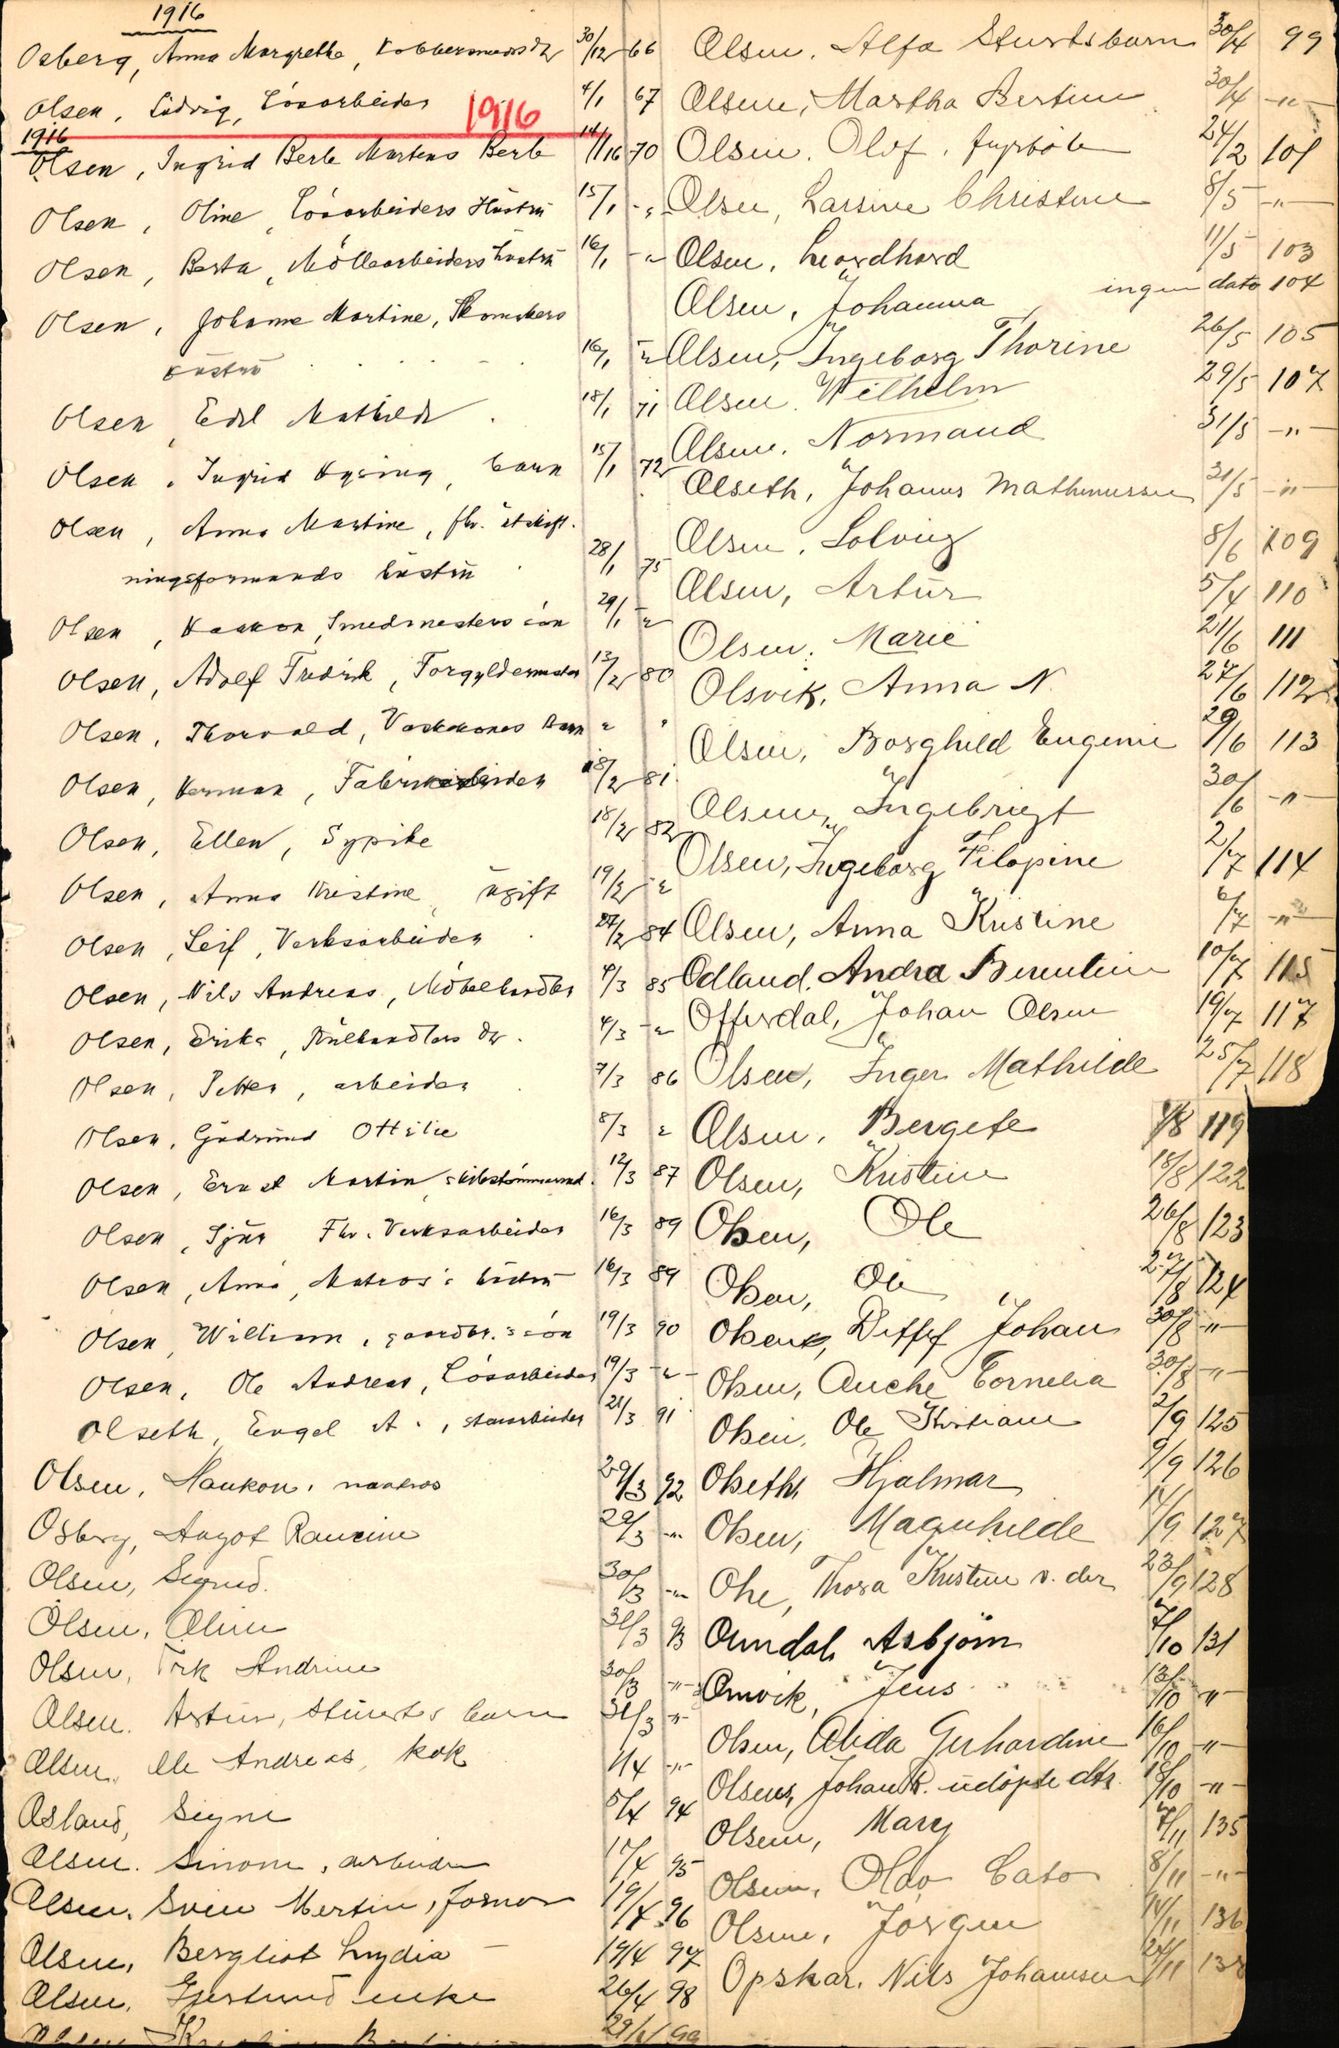 1916
Osberg, Anna Margrethe, Kobbersmeds dr 30/12 66
Olsen, Ludvig, Lösarbeider 4/1 67
1916
1916
Olsen, Ingrid Berle Martens Berle 14/1 16 70
Olsen, Oline, Lösarbeiders Hüstrü 15/1 -"-
Olsen, Berta, Möllearbeiders hüstrü 16/1 -"
Olsen, Johanne Martine, Skomakers
hüstrü 16/1 "
Olsen, Edel Mathilde 18/1 71
Olsen, Ingrid Kysing, barn 15/1 72
Olsen, Anna Martine, fhv. ütskift-
ningsformands hüstrü 28/1 75
Olsen, Haakon, Smedmesters sön 29/1 "
Olsen, Adolf Fredrik, Forgyldermester 13/2 80
Olsen, Thorvald, Vaskekones barn " "
Olsen, Herman, Fabrikarbeider 18/2 81
Olsen, Ellen, Sypike 18/2 82
Olsen, Anna Kristine, ügift 19/2 "
Olsen, Leif, Verksarbeider 27/2 84
Olsen, Nils Andreas, Möbelhandler 4/3 85
Olsen, Erika, Külhandlers dr. 4/3 -"
Olsen, Petter, arbeider 7/3 86
Olsen, Güdründ Ottilie 8/3 "
Olsen, Ernst Martin, skibstömmermd. 12/3 87
Olsen, Sjür Fhv. Verksarbeider 16/3 89
Olsen, Anna, Matros's hüstrü 16/3 89
Olsen, William, gaardbr.s sön 19/3 90
Olsen, Ole Andreas, Lösarbeider 19/3 -"-
Olseth, Engel A., starbeider 21/3 91
Olsen, Haakon, matros 29/3 92
Osberg, Aagot Rancine 29/3 -"-
Olsen, Sigurd. 30/3 -"-
Olsen, Oline 31/3 93
Olsen, Andrine 30/3 -"-
Olsen. Artür, Stüerts barn 31/3 -"-
Olsen, Ole Andreas, kok 1/4 -"-
Osland, Signe 5/4 94
Olsen. Simon, arbeider 10/4 95
Olsen. Svein Martin, former 19/4 96
Olsen, Bergliot Lydia 19/4 97
Olsen, Gjertrud enke 26/4 98
29/4 99
Olsen, Alfa Stuertsbarn 30/4 99
Olsen, Martha Bertine 30/4 -"-
Olsen. Olof. fyrböter 24/2 101
Olsen, Larsine Christine 8/5 -"-
Olsen, Leordhard 11/5 103
Olsen, Johanna ingen dato 104
Olsen, Ingeborg Thorine 26/5 105
Olsen. Wilhelm 29/5 107
Olsen. Normand 31/5 -"-
Olseth, Johannes Mathinussen 31/5 -"-
Olsen. Solveig 8/6 109
Olsen, Artür 5/4 110
Olsen. Marie 21/6 111
Olsvik, Anna N. 27/6 112
Olsen, Borghild Eugenie 29/6 113
Olsen, Ingebrigt 30/6 -"-
Olsen, Ingeborg Filopine 2/7 114
Olsen, Anna Kristine 6/7 -"-
Odland, Andrea Berentine 10/7 115
Offerdal, Johan Olsen 19/7 117
Olsen, Inger Mathilde 25/7 118
Olsen, Bergete 1/8 119
Olsen, Kristine 18/8 122
Olsen, Ole 26/8 123
Olsen, Ole 27/8 124
Olsen, Detlef Johan 30/8 -"-
Olsen, Anche Cornelia 30/8 -"-
Olsen, Ole Kristian 2/9 125
Olseth, Hjalmar 9/9 126
Olsen, Magnhilde 14/9 127
Ohe, Thora Kristine v. der 23/9 128
Omdal, Asbjörn 7/10 131
Omvik, Jens 13/10 -"-
Olsen, Alida Gerhardine 16/10 -"-
Olsens, Johan R. udöpte dtr. 18/10 -"-
Olsen, Mary 7/11 135
Olsen, Olav Cato 8/11 -"-
Olsen, Jörgen 14/11 136
Opskar, Nils Johannsen 24/11 138